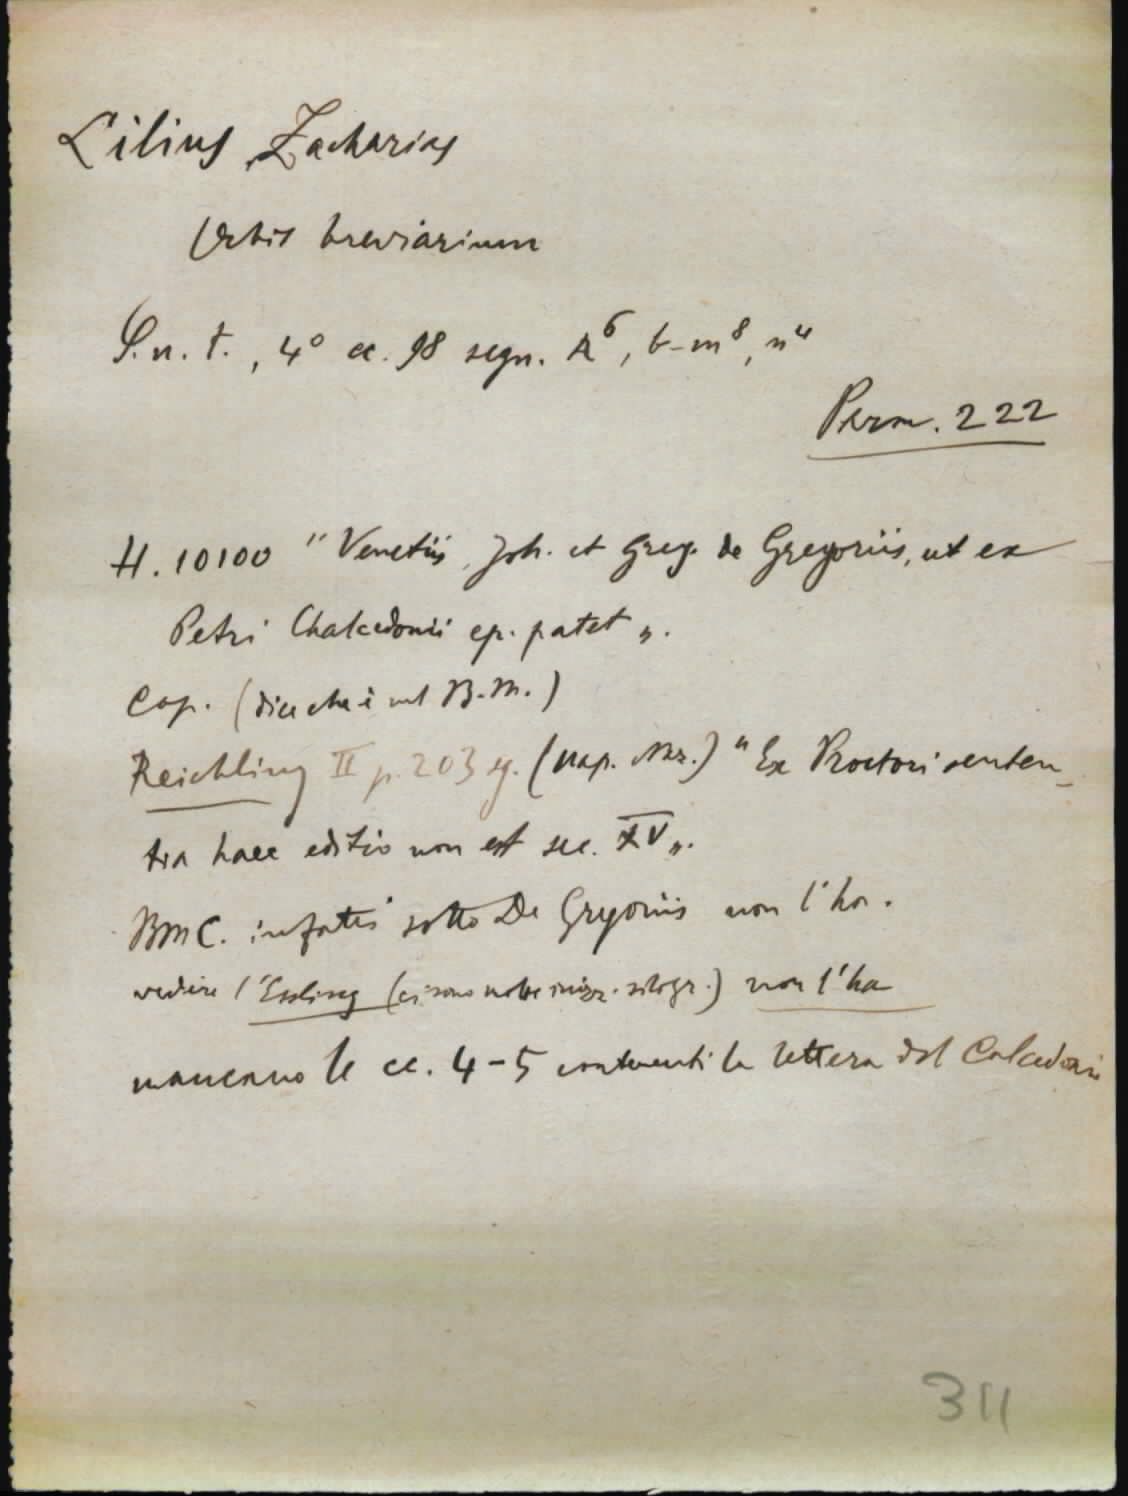 Lilius, Zacharias
Orbis breviarium
S.n.t., 4° cc. 98 segn. A⁶, b-m⁸, n⁴
Perm. 222
H. 10100 "Venetiis, Joh. et Greg. de Gregoriis, ut ex
Petri Chalcedonii ep. patet„.
Cop. (dice che è nel B.M.)
Reichling II p. 203 sg. (Nap. Naz.) "Ex Proctori senten-
tia haec editio non est sec. XV„.
BMC. infatti sotto De Gregoriis non l'ha.
vedere l'Essling (ci sono molte inizz. silogr.) non l'ha
mancano le cc. 4-5 contenenti la lettera del Calcedonio
311